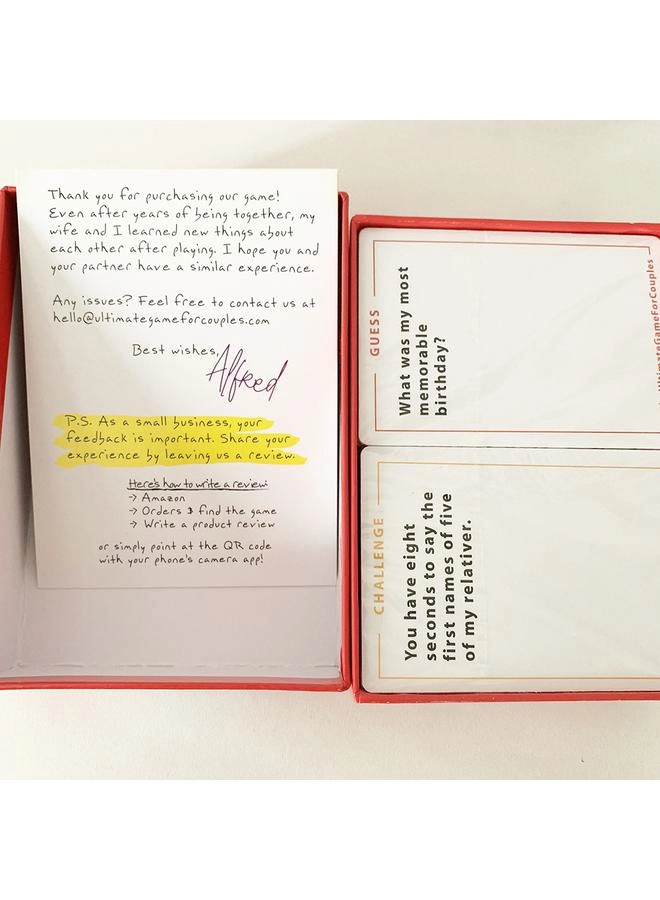 Thank you for purchasing our game!
Even after years of being together, my
wife and I learned new things about
each other after playing. I hope you and
your partner have a similar experience.
Any issues? Feel free to contact us at
hello@ultimategameforcouples.com
Best wishes,
Alfred
P.S. As a small business, your
feedback is important. Share your
experience by leaving us a review.
Here's how to write a review:
→ Amazon
→ Orders & find the game
→ Write a product review
or simply point at the QR code
with your phone's camera app!
GUESS
What was my most
memorable
birthday?
CHALLENGE
You have eight
seconds to say the
first names of five
of my relativer.